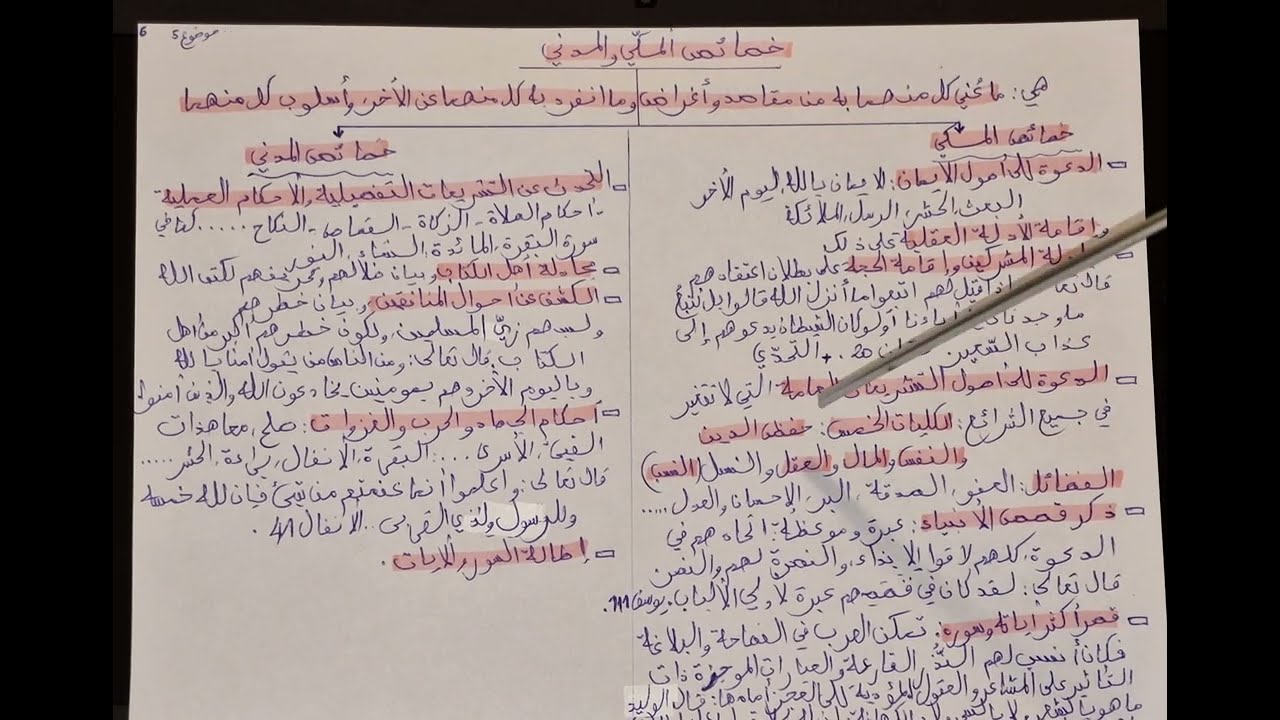 6
موضوع 5
خصائص المكّي والمدني
هي: ما عُني كل منهما به من مقاصد وأغراض وما انفرد به كل منهما عن الآخر، وأسلوب كل منهما
خصائص المكي
الدعوة إلى أصول الإيمان: الإيمان بالله، اليوم الآخر
البعث، الحشر، الرسل، الملائكة
وإقامة الأدلة العقلية على ذلك
المشركين وإقامة الحجة على بطلان اعتقادهم
قيل لهم اتبعوا ما أنزل الله قالوا بل نتبع
ما وجدنا آباءنا أولو كان الشيطان يدعوهم إلى
عذاب السعير + التحدّي
الدعوة إلى أصول التشريعات العامة التي لا تتغير
في جميع الشرائع: الكليات الخمس: حفظ الدين
والنفس والمال والعقل والنسل (النسب)
الفضائل: العفو، الصدقة، البر، الإحسان والعدل .....
ذكر قصص الأنبياء: عبرة وموعظة: اتحادهم في
الدعوة، كلهم لاقوا الإيذاء، والنصرة لهم والنصر
قال تعالى: لقد كان في قصصهم عبرة لأولي الألباب. يوسف 111.
قصر أكثر آياته وسوره: تمكن العرب في الفصاحة والبلاغة
فكان أنسب لهم النُّذُر القارعة والعبارات الموجزة ذات
التأثير على المشاعر والعقول المؤدية إلى العجز أمامها: قال الوليد
خصائص المدني
التحدث عن التشريعات التفصيلية والأحكام العملية
- أحكام الصلاة - الزكاة - القصاص - النكاح ...... كما في
سورة البقرة، المائدة، النساء، النور
مجادلة أهل الكتاب وبيان ضلالهم وتحريفهم لكتب الله
الكشف عن أحوال المنافقين وبيان خطرهم
ولبسهم زيّ المسلمين، ولكون خطرهم أكبر من أهل
الكتاب، قال تعالى: ومن الناس من يقول آمنا بالله
وباليوم الآخر وما هم بمومنين يخادعون الله والذين آمنوا
أحكام الجهاد والحرب والغزوات: صلح، معاهدات
الفيئ، الأسرى ...: البقرة، الانفال، براءة، الحشر .....
قال تعالى: واعلموا أنما غنمتم من شيئ فإن لله خمسه
وللرسول ولذي القربى .. الأنفال 41.
إطالة السور والآيات.